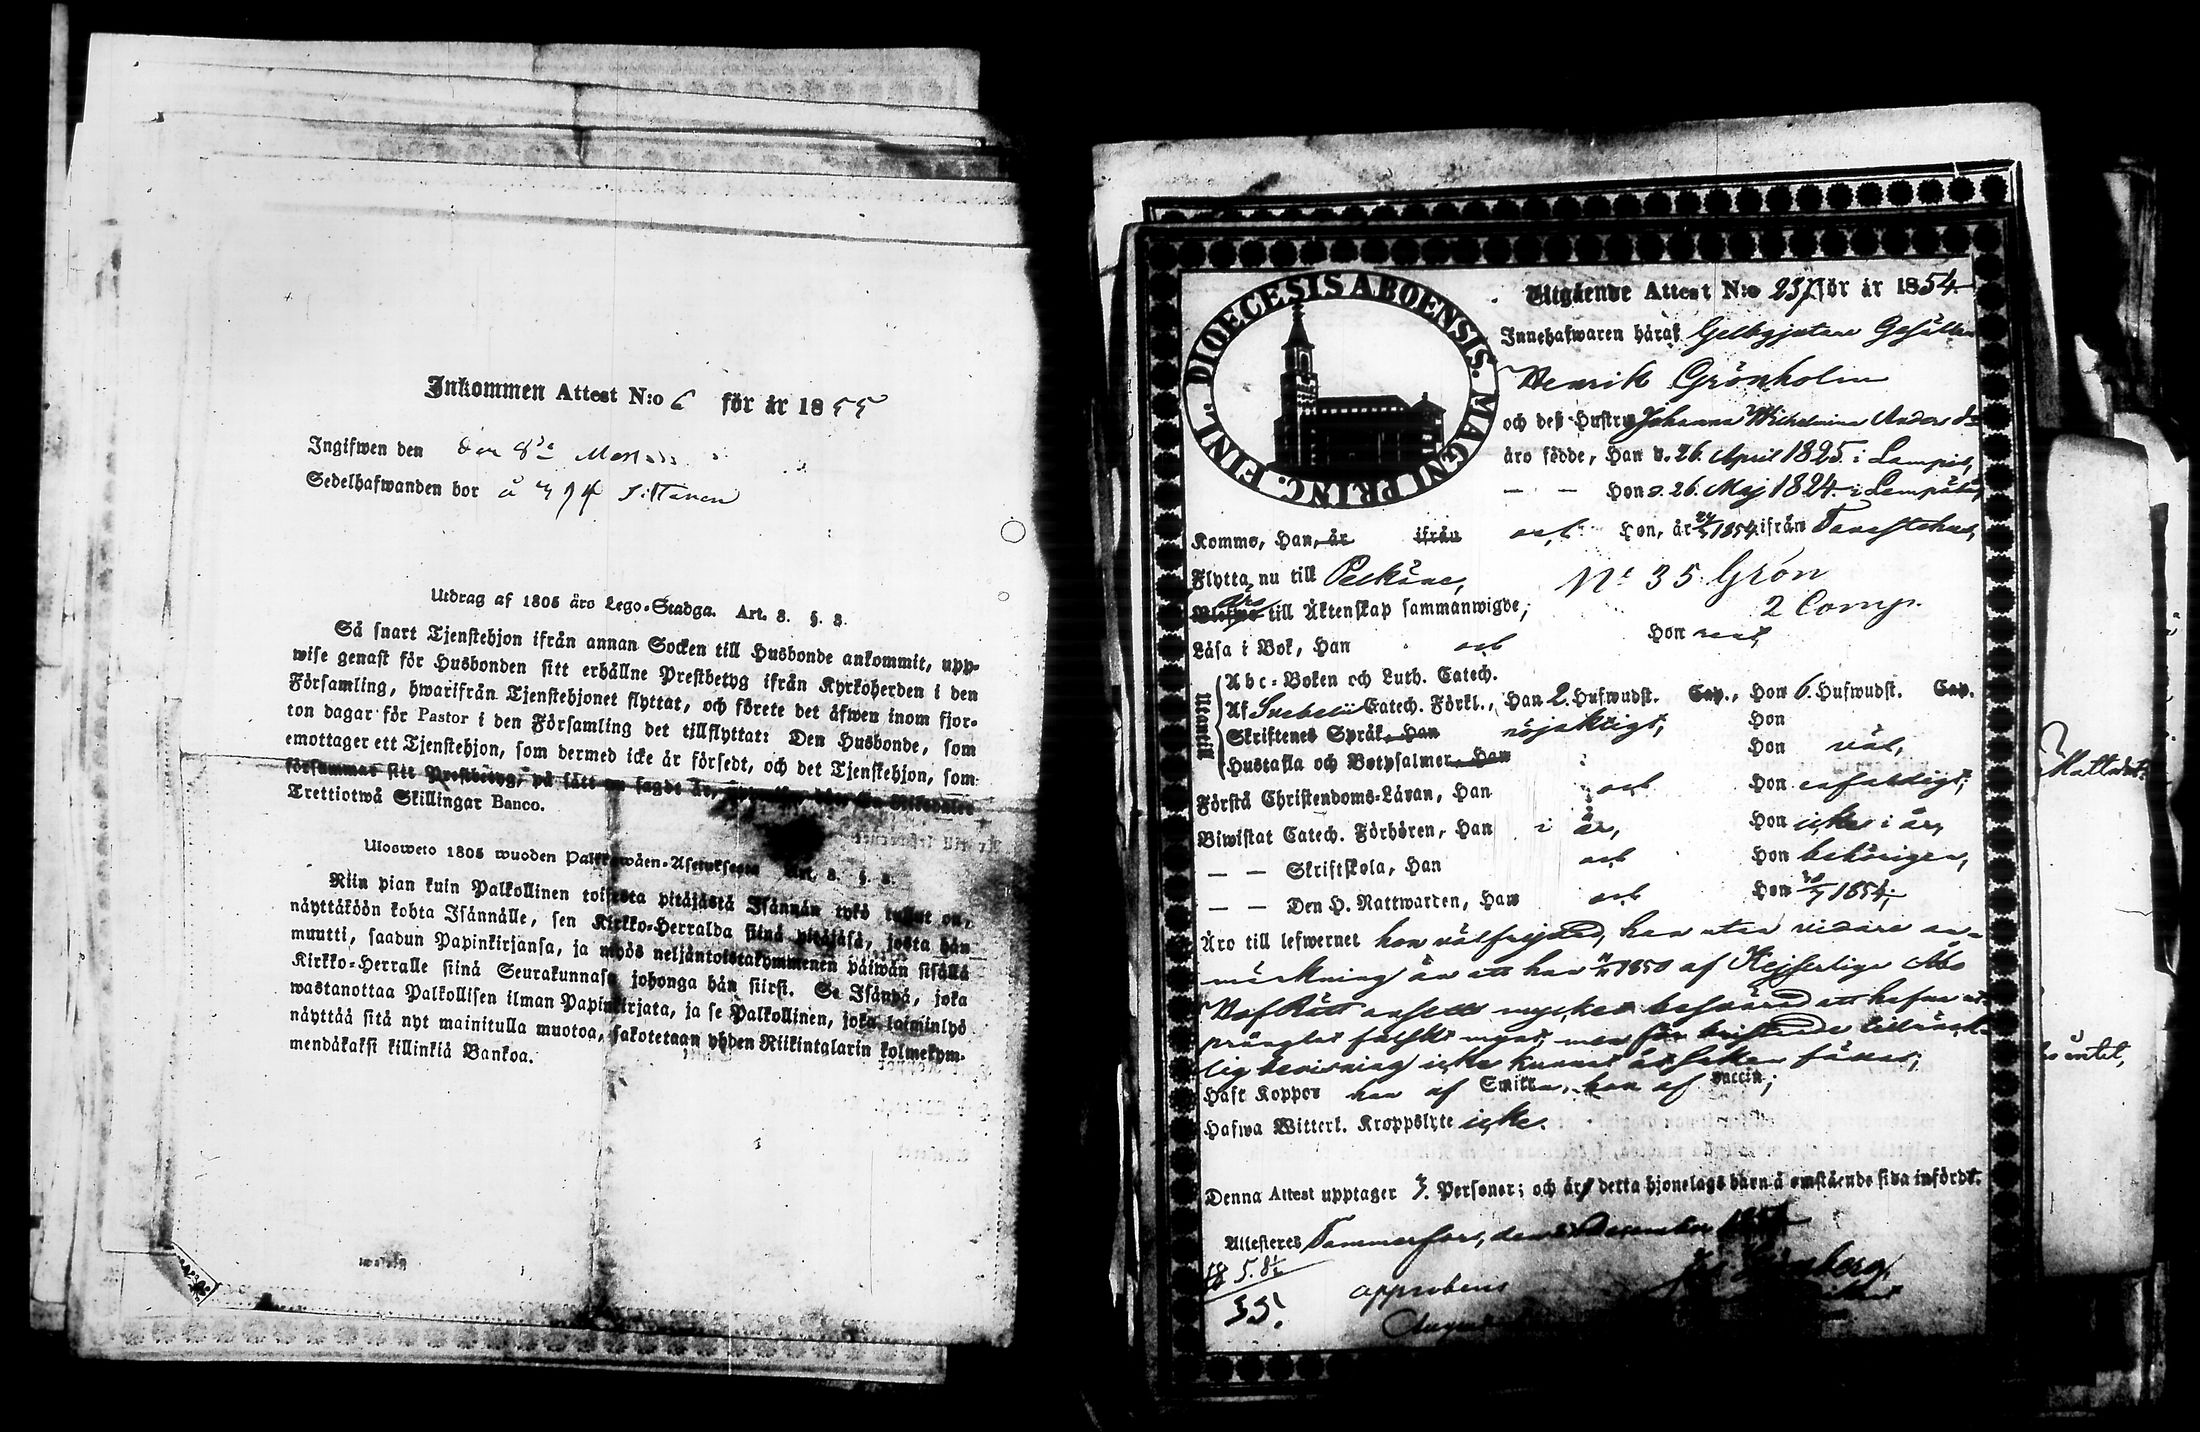 Inkommen Attest N:o 6 för år 1855
Ingifwen den den 8de Martii
Sedelhafwanden bor å
Utdrag af 1805 års Lego-Stadga. Art. 3. §. 3.
Så snart Tjenstehjon ifrån annan Socken till Husbonde ankommit, upp-
wise genast för Husbonden sitt erhållne Prestbetyg ifrån Kyrkoherden i den
Församling, hwarifrån Tjenstehjonet flyttat, och förete det äfwen inom fjor-
ton dagar för Pastor i den Församling det tillflyttat: Den Husbonde, som
emottager ett Tjenstehjon, som dermed icke är försedt, och det Tjenstehjon, som
försummar sitt Prestbetyg, på sätt nu sagdt är,
Trettiotwå Skillingar Banco.
Ulosweto 1805 wuoden Palkkawäen-Asetuksesta Art. 3. §. 3.
Niin pian kuin Palkollinen toisesta pitäjästä Isännän tykö tullut on,
näyttäköön kohta Isännälle, sen Kirkko-Herralda siinä pitäjäsä, josta hän
muutti, saadun Papinkirjansa, ja myös neljäntoistakymmenen päiwän sisällä
Kirkko-Herralle siinä Seurakunnasa johonga hän siirsi. Se Isändä, joka
wastanottaa Palkollisen ilman Papinkirjata, ja se Palkollinen, joka laiminlyö
näyttää sitä nyt mainitulla muotoa, sakotetaan yhden Riikintalarin kolmekym-
mendäkaksi killinkiä Bankoa.
DIOECESIS ABOENSIS. MAGNI PRINC. FINL.
Utgående Attest N:o 237 för år 1854
Innehafwaren häraf Gelbgjutare Gesällen
Henrik Grönholm
och deß Hustru Johanna Wilhelmina Anders dr
äro födde, Han d. 26 April 1825 i Lampis,
— — Hon d. 26. Maj 1824 i Lempälä,
Komne, Han, är ifrån och Hon, är 1854 ifrån Tavastehus,
Flytta nu till Pelkäne, N:o 35 Grön
2 Comp.
äro till Äktenskap sammanwigde,
Läsa i Bok, Han och Hon rent,
Utantill
Abc-Boken och Luth. Catech.
Af Svebelii Catech. Förkl., Han 2. Hufwudst. Cap., Hon 6. Hufwudst. Cap.
Skriftenes Språk, Han nöjaktigt, Hon
Hustafla och Botpsalmer, Han Hon väl,
Förstå Christendoms-Läran, Han och Hon enfaldigt,
Biwistat Catech. Förhören, Han i år, Hon icke i år,
— — Skriftskola, Han och Hon behörigen,
— — Den H. Nattwarden, Han och Hon 1854;
Äro till lefwernet hon välfrejdad, han utan vidare an-
märkning än att han 1850 af Kejserliga Åbo
Hof Rätt ansetts mycket besvärad att hafva ut-
prånglat falskt mynt, men för bristande tillräck-
lig bevisning icke kunnat åt saken fällas;
Haft Koppor han af Smitta, hon af vaccin;
Hafwa Witterl. Kroppslyte icke.
Denna Attest upptager 3. Personer; och äro detta hjonelags barn å omstående sida införde.
Attesteras Tammerfors, den December 1854
approberas
55.